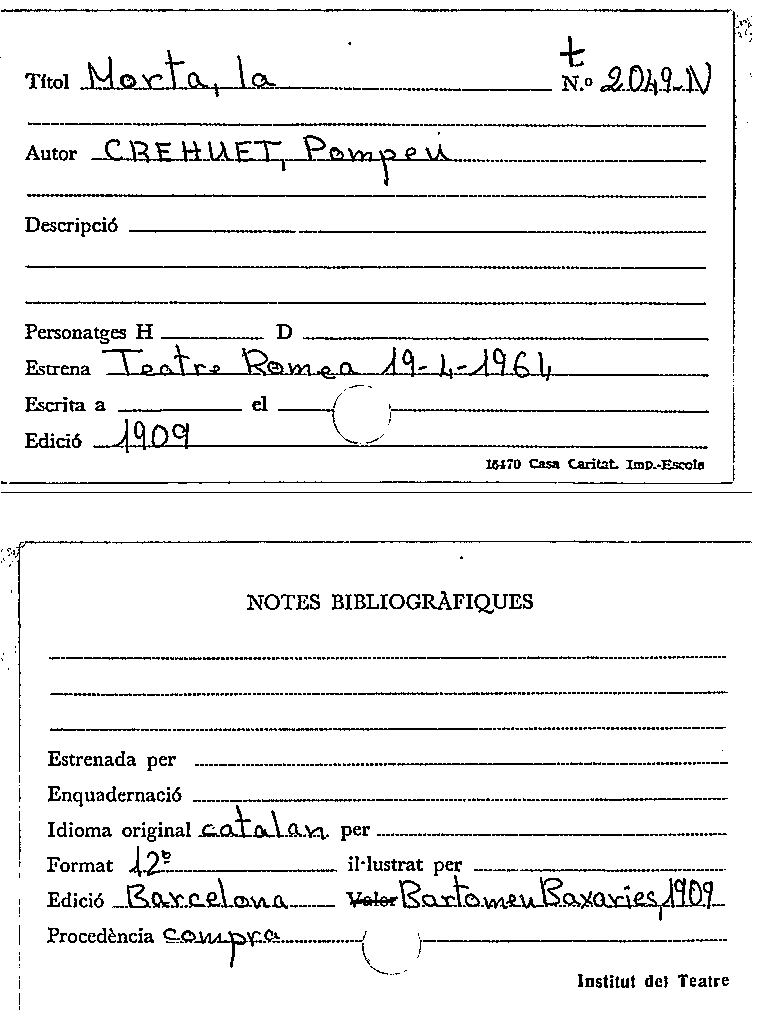 t
Títol Morta, la N.º 2049-N
Autor CREHUET, Pompeu
Descripció
Personatges H D
Estrena Teatre Romea 19-4-1964
Escrita a el
Edició 1909
16470 Casa Caritat. Imp.-Escola
NOTES BIBLIOGRÀFIQUES
Estrenada per
Enquadernació
Idioma original catalan per
Format 12º il·lustrat per
Edició Barcelona Valor Bartomeu Baxaries, 1909
Procedència compra
Institut del Teatre